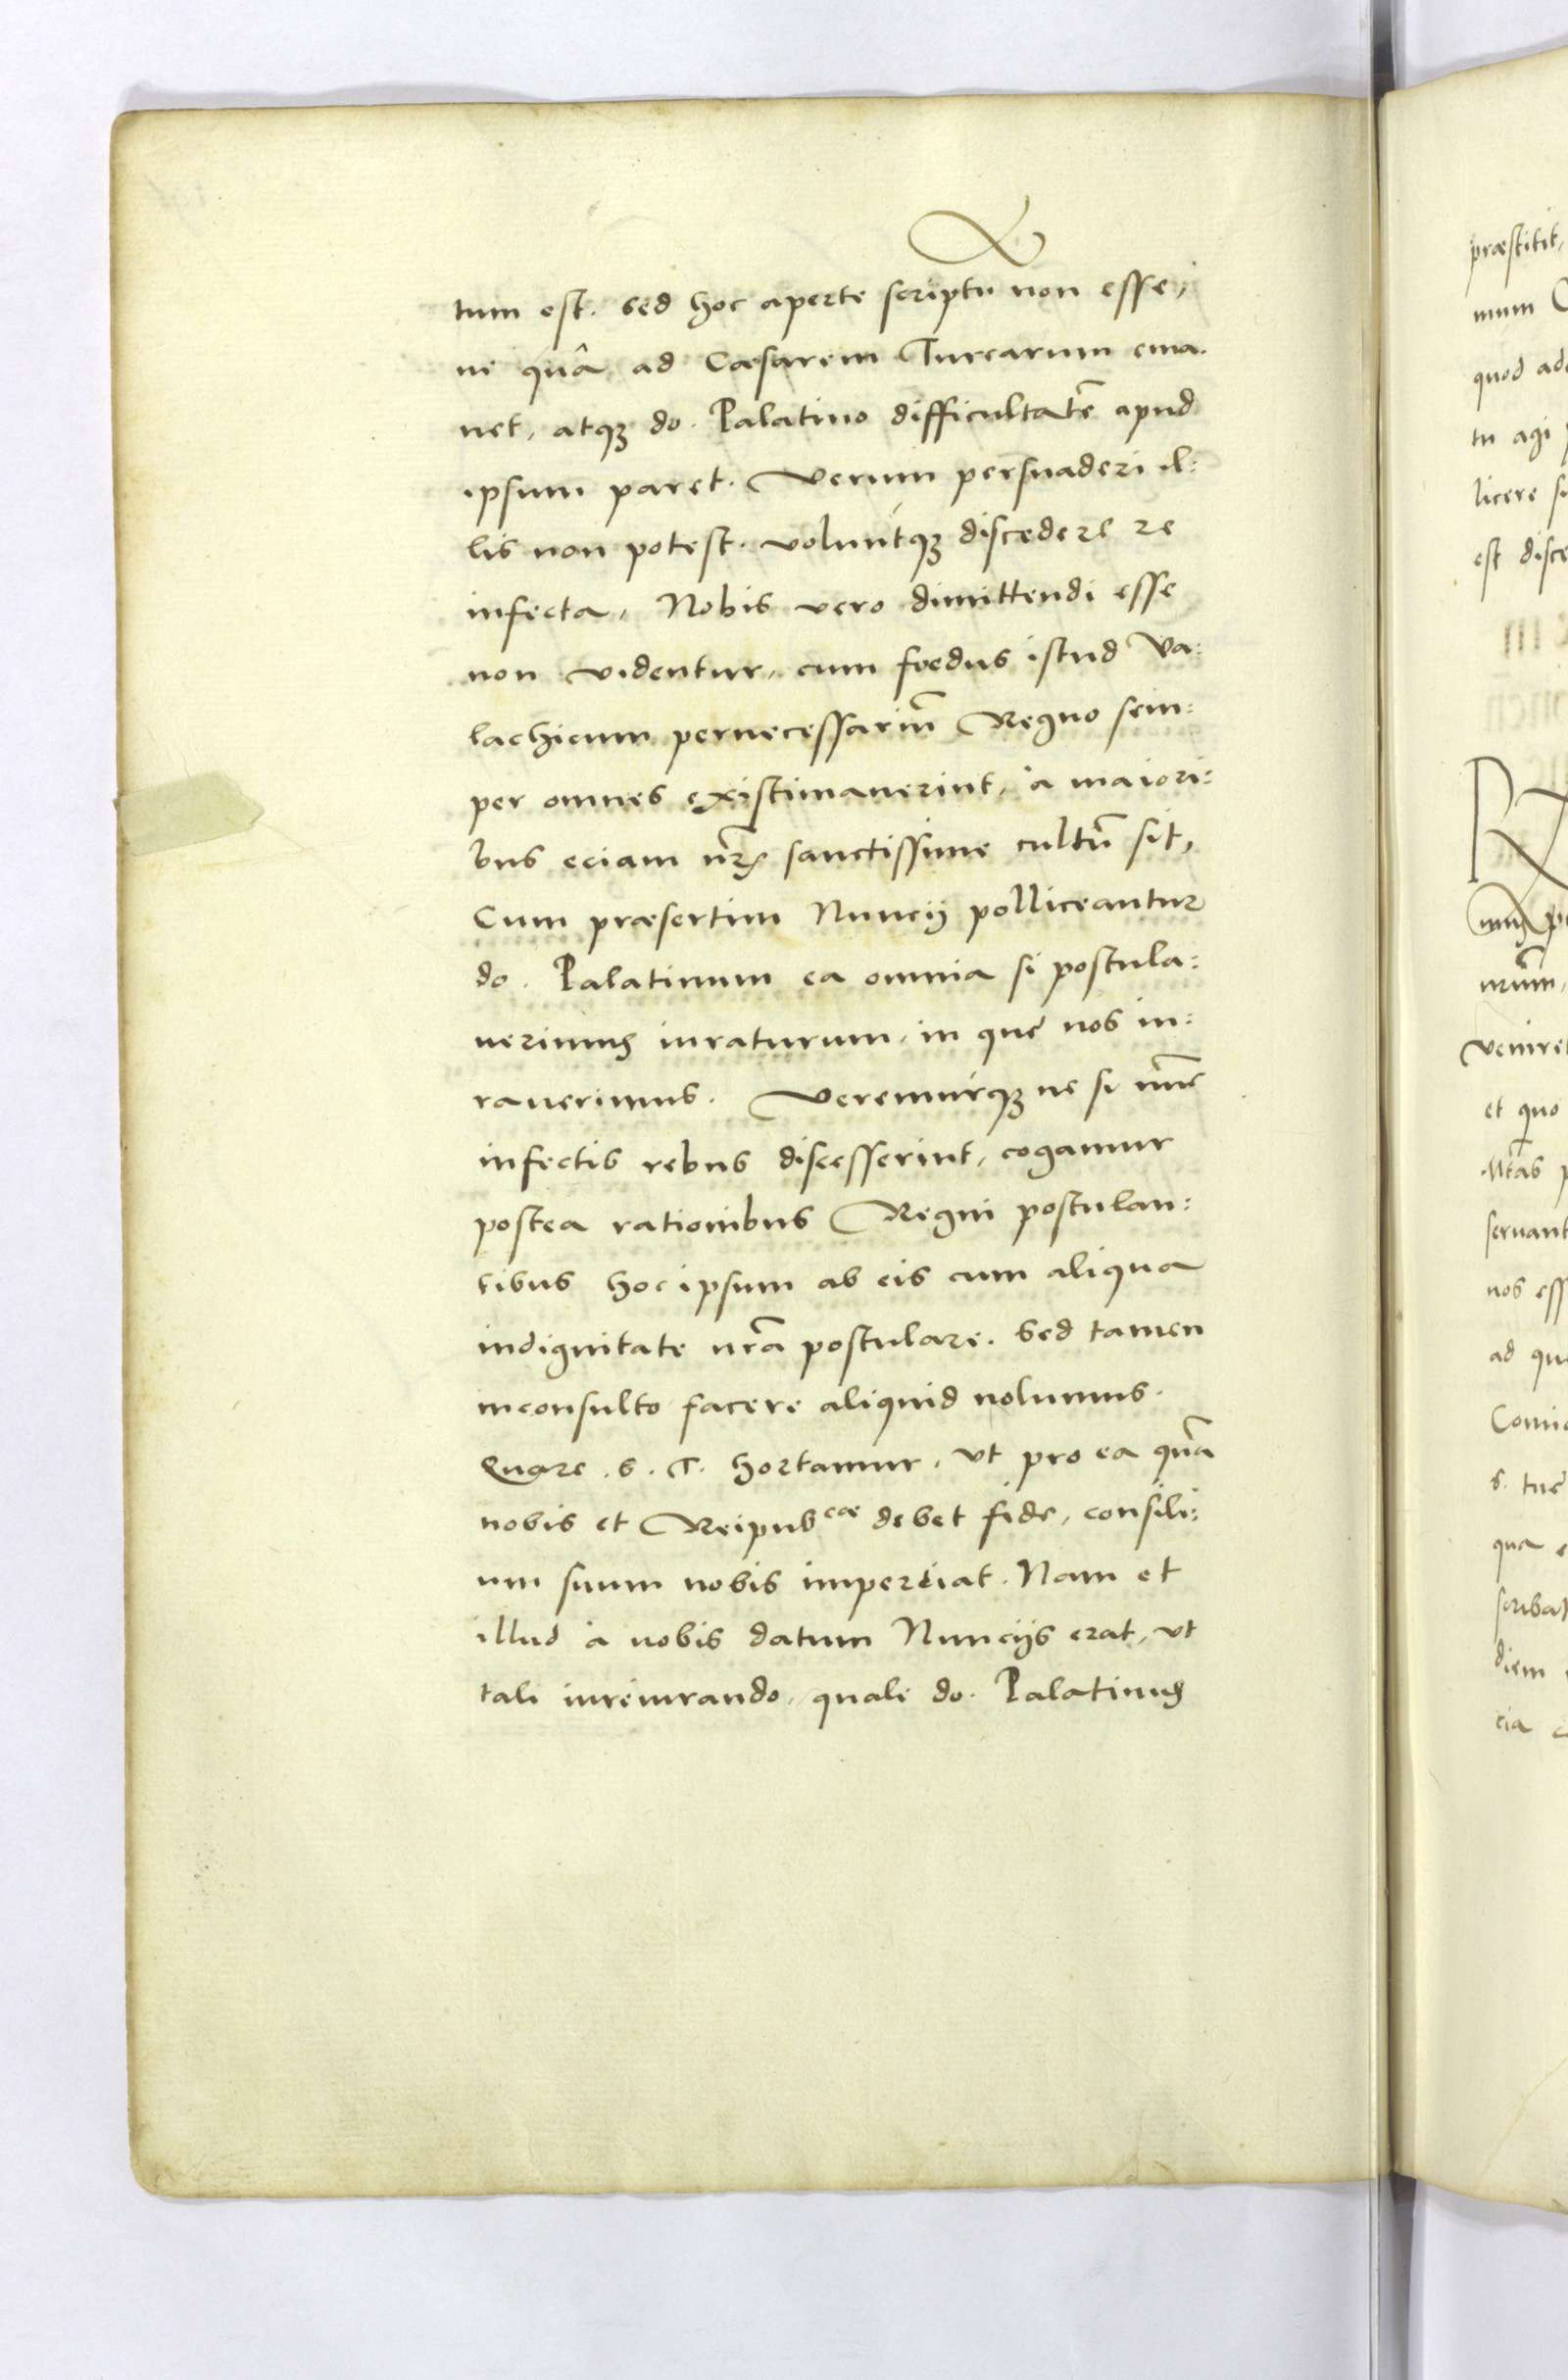 tum est. sed hoc aperte scriptū non esse,
ne quâ ad Cæsarem Turcarum ema-
net, atqꝫ do. Palatino difficultatē apud
ipsum paret. Verum persuaderi il:
lis non potest. voluntqꝫ discedere re
infecta, Nobis vero dimittendi esse
non videntur, cum foedus istud Va:
lachicum pernecessariū Regno sem:
per omnes existimauerint, à maiori:
bus eciam nr̄s sanctissime cultū sit,
Cum præsertim Nuncij polliceantur
do. Palatinum ea omnia si postula:
uerimus iuraturum, in quę nos iu:
rauerimus. Veremurqꝫ ne si nūc
infectis rebus discesserint, cogamur
postea rationibus Regni postulan:
tibus hoc ipsum ab eis cum aliqua
indignitate nr̄a postulare. Sed tamen
inconsulto facere aliquid nolumus.
Quare .S. T. hortamur, vt pro ea quā
nobis et Reipubcae debet fide, consili:
um suum nobis imperciat. Nam et
illud à nobis datum Nuncijs erat, vt
tali iureiurando, quale do. Palatinus
præstitit,
mum
quod
tu agi
licere
est
veniret
et quo
nos
ad
Comi
S. tuę
qua
diem
cia